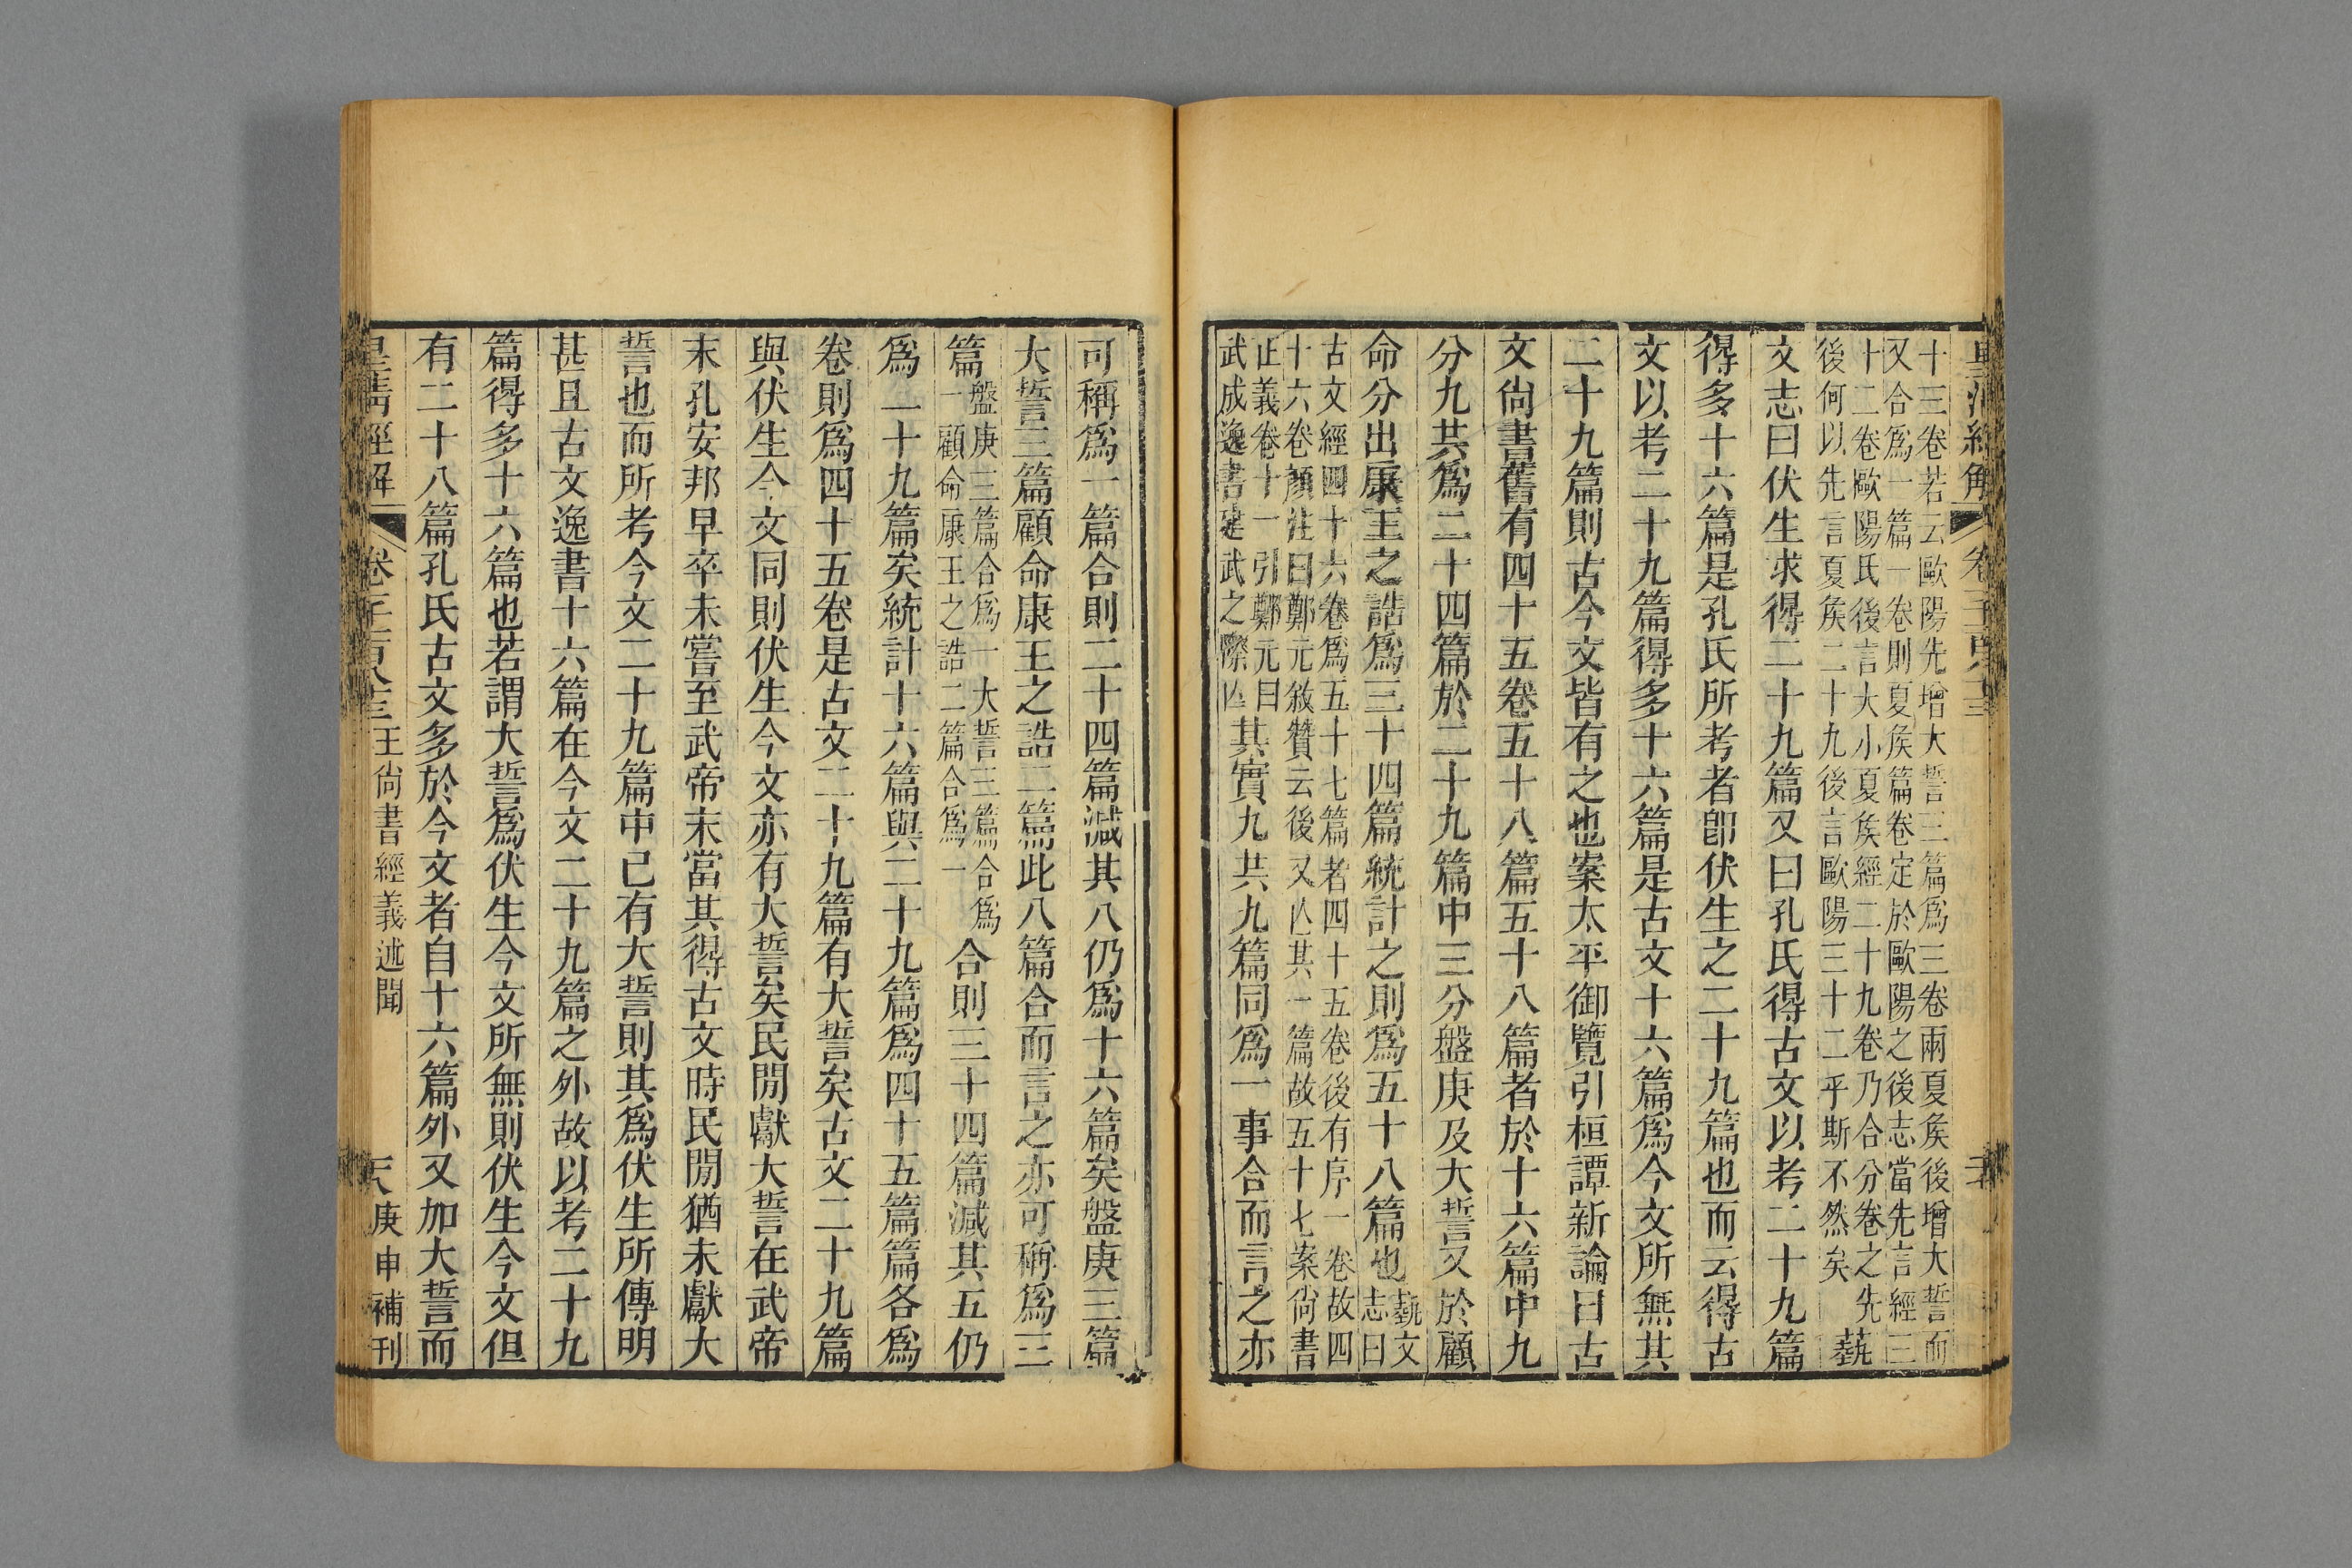 皇清經解 卷
十三卷若云歐陽先增大誓三篇爲三卷兩夏矦後增大誓而
又合爲一篇一卷則夏矦篇卷定於歐陽之後志當先言經三
十二卷歐陽氏後言大小夏矦經二十九卷乃合分卷之先
後何以先言夏矦二十九後言歐陽三十二乎斯不然矣
藝
文志曰伏生求得二十九篇又曰孔氏得古文以考二十九篇
得多十六篇是孔氏所考者卽伏生之二十九篇也而云得古
文以考二十九篇得多十六篇是古文十六篇爲今文所無其
二十九篇則古今文皆有之也案太平御覽引桓譚新論曰古
文尙書舊有四十五卷五十八篇五十八篇者於十六篇中九
分九共爲二十四篇於二十九篇中三分盤庚及大誓又於顧
命分出康王之誥爲三十四篇統計之則爲五十八篇也
藝文
志曰
古文經四十六卷爲五十七篇者四十五卷後有序一卷故四
十六卷顏注曰鄭元敘贊云後又亾其一篇故五十七案尙書
正義卷十一引鄭元曰
武成逸書建武之際亾
其實九共九篇同爲一事合而言之亦
可稱爲一篇合則二十四篇減其八仍爲十六篇矣盤庚三篇
大誓三篇顧命康王之誥二篇此八篇合而言之亦可稱爲三
篇
盤庚三篇合爲一大誓三篇合爲
一顧命康王之誥二篇合爲一
合則三十四篇減其五仍
爲二十九篇矣統計十六篇與二十九篇爲四十五篇篇各爲
卷則爲四十五卷是古文二十九篇有大誓矣古文二十九篇
與伏生今文同則伏生今文亦有大誓矣民閒獻大誓在武帝
末孔安邦早卒未嘗至武帝末當其得古文時民閒猶未獻大
誓也而所考今文二十九篇中已有大誓則其爲伏生所傳明
甚且古文逸書十六篇在今文二十九篇之外故以考二十九
篇得多十六篇也若謂大誓爲伏生今文所無則伏生今文但
有二十八篇孔氏古文多於今文者自十六篇外又加大誓而
皇清經解 卷 王尙書經義述聞 庚申補刊